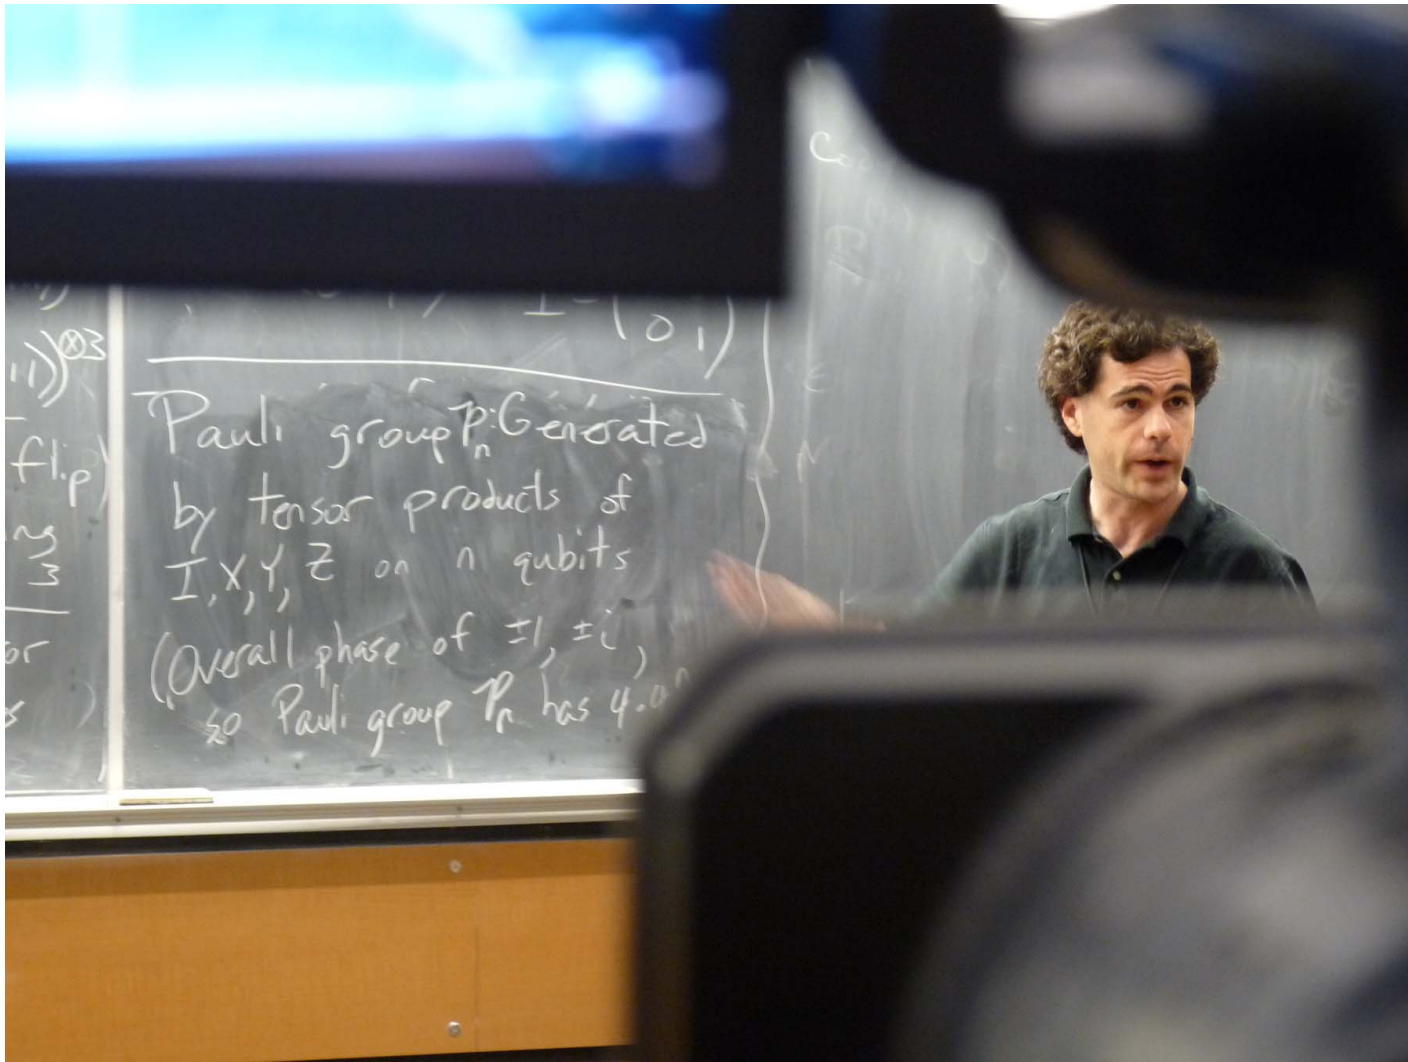 ⊗3
flip)
3
or
I = (
0 1)
Pauli group 𝒫n: Generated
by tensor products of
I, X, Y, Z on n qubits
(Overall phase of ±1, ±i,
so Pauli group 𝒫n has 4.4